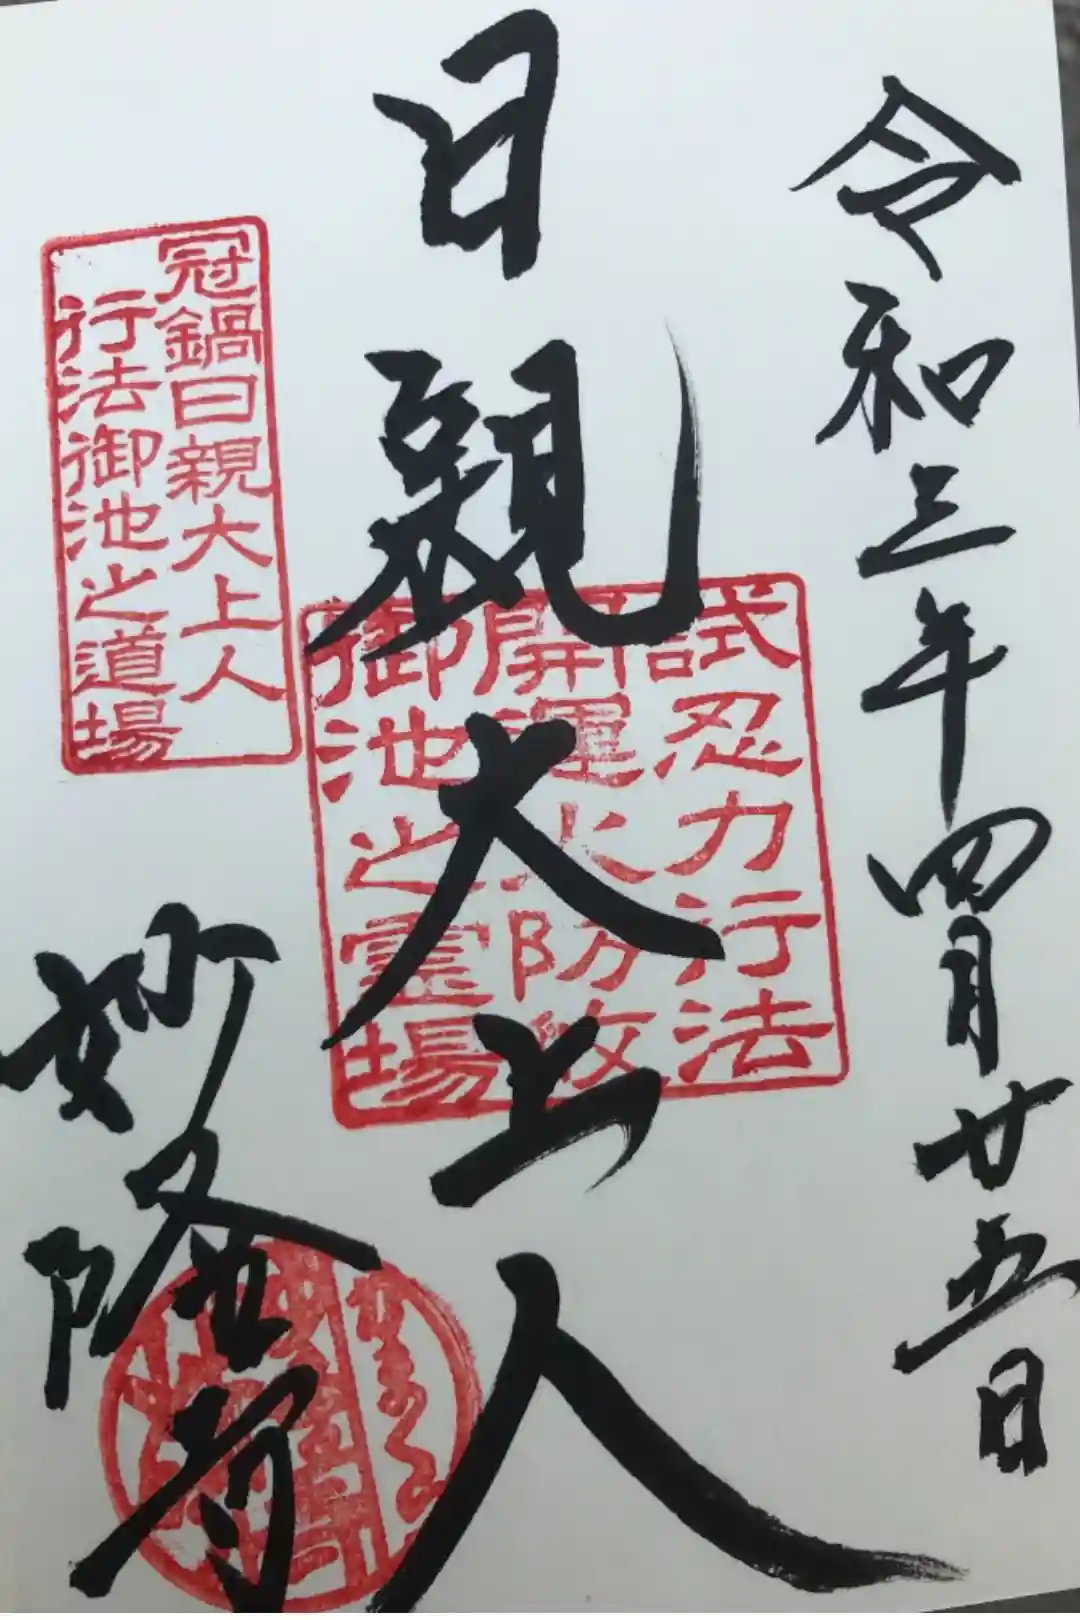 令和三年四月廿五日
日親大上人
試忍力行法
開運火防
御池之霊場
冠鍋日親大上人
行法御池之道場
妙隆寺